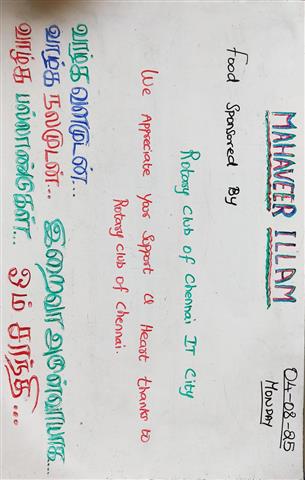 04-08-25
MONDAY
MAHAVEER ILLAM
Food Sponsored By
Rotary Club of Chennai IT City
We Appreciate Your Support & Heart thanks to
Rotary Club of Chennai.
வாழ்க வளமுடன்...
வாழ்க நலமுடன்... இறைவா அருள்வாயாக...
வாழ்க பல்லாண்டுகள்... ஓம் சாந்தி...